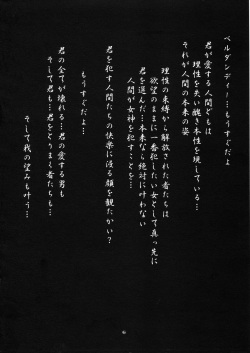 ベルダンディー…もうすぐだよ…
君が愛する人間どもは
理性を失い醜い本性を現している…
それが人間の本来の姿
理性の束縛から解放された者たちは
欲望のままに一番犯したい女として真っ先に
君を選んだ…本来なら絶対に叶わない
人間が女神を犯すことを…
君を犯す人間たちの快楽に浸る顔を観たかい？
もうすぐだよ…
君の全てが壊れる…君の愛する者も
そして君も…君をとりまく者たちも…
そして我の望みも叶う…